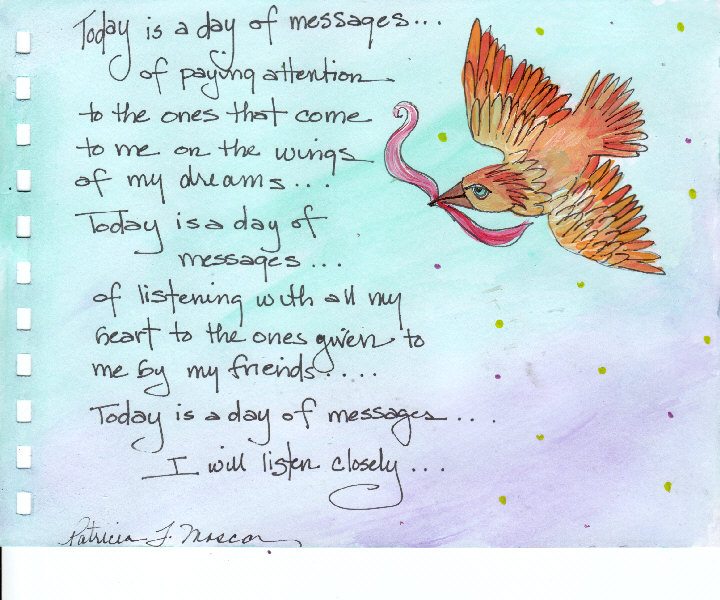 Today is a day of messages...
of paying attention
to the ones that come
to me on the wings
of my dreams...
Today is a day of
messages...
of listening with all my
heart to the ones given to
me by my friends....
Today is a day of messages...
I will listen closely...
Patricia J. Mosca